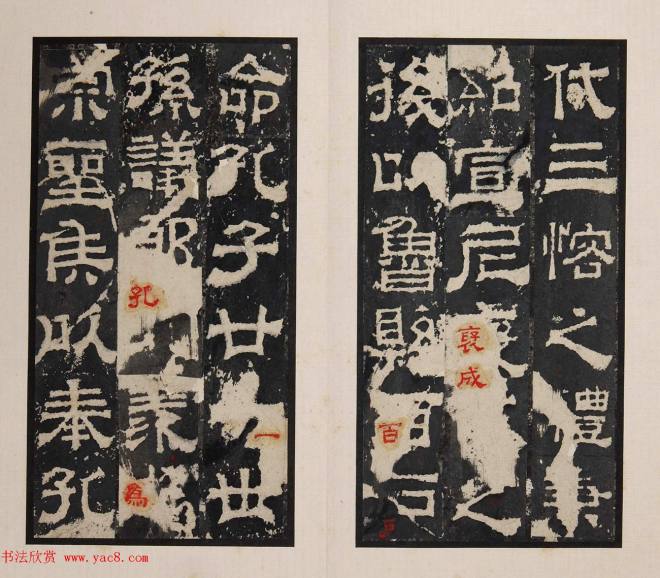 代三愘之禮兼
紹宣尼褒成之
後以魯縣百戶
命孔子廿一世
孫議郎孔羡為
宗聖侯以奉孔
书法欣赏 www.yac8.com